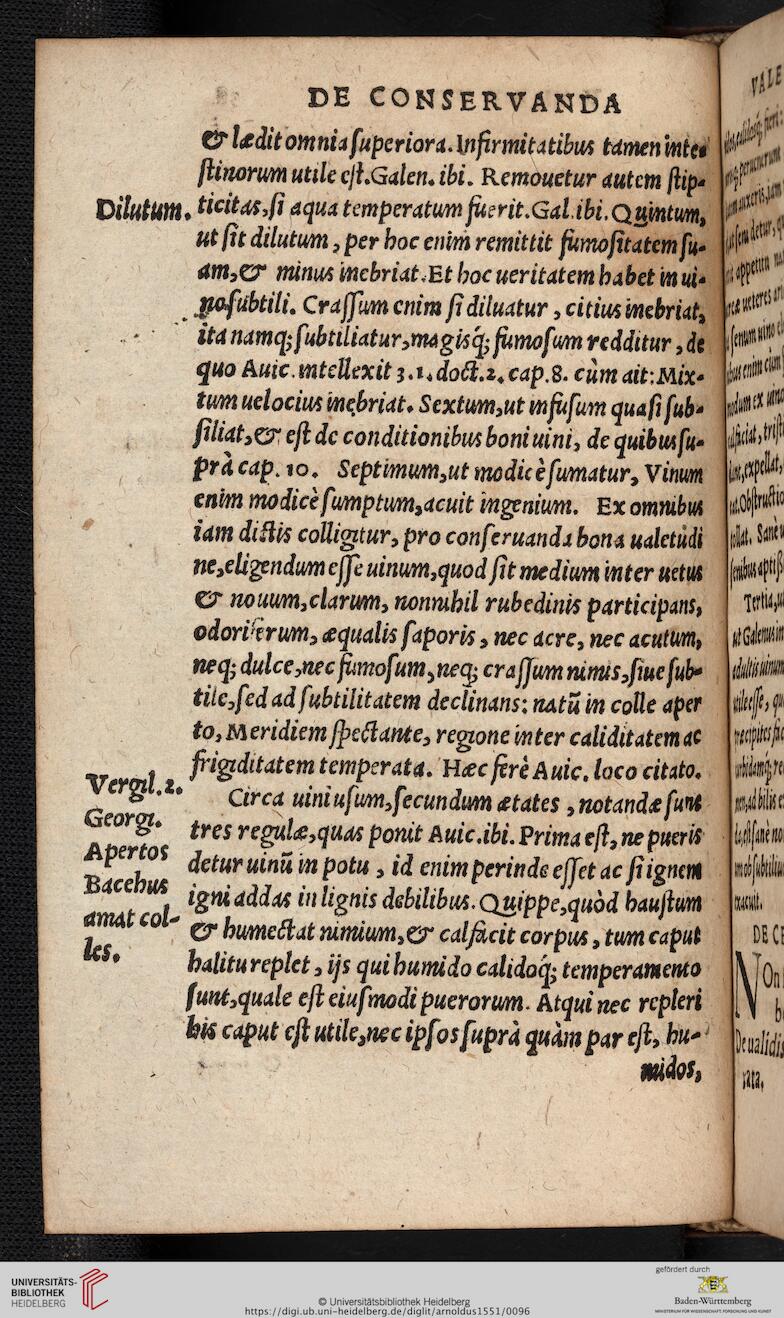 DE CONSERVANDA
& lædit omnia superiora. Infirmitatibus tamen inte-
stinorum utile est. Galen. ibi. Remouetur autem stip-
Dilutum. ticitas, si aqua temperatum fuerit. Gal. ibi. Quintum,
ut sit dilutum, per hoc enim remittit fumositatem su-
am, & minus inebriat. Et hoc ueritatem habet in ui-
no subtili. Crassum enim si diluatur, citius inebriat,
ita namq; subtiliatur, magisq́; fumosum redditur, de
quo Auic. intellexit 3. 1. doct. 2. cap. 8. cùm ait: Mix-
tum uelocius inebriat. Sextum, ut infusum quasi sub-
siliat, & est de conditionibus boni uini, de quibus su-
prà cap. 10. Septimum, ut modicè sumatur, Vinum
enim modicè sumptum, acuit ingenium. Ex omnibus
iam dictis colligitur, pro conseruanda bona ualetudi
ne, eligendum esse uinum, quod sit medium inter uetus
& nouum, clarum, nonnihil rubedinis participans,
odoriferum, æqualis saporis, nec acre, nec acutum,
neq; dulce, nec fumosum, neq; crassum nimis, siue sub-
tile, sed ad subtilitatem declinans: natū in colle aper
to, Meridiem spectante, regione inter caliditatem ac
frigiditatem temperata. Hæc ferè Auic. loco citato.
Vergil. 2.
Georgi.
Apertos
Bacchus
amat col-
les.
Circa uini usum, secundum ætates, notandæ sunt
tres regulæ, quas ponit Auic. ibi. Prima est, ne pueris
detur uinū in potu, id enim perinde esset ac si ignem
igni addas in lignis debilibus. Quippe, quòd haustum
& humectat nimium, & calfacit corpus, tum caput
halitu replet, ijs qui humido calidoq́; temperamento
sunt, quale est eiusmodi puerorum. Atqui nec repleri
his caput est utile, nec ipsos suprà quàm par est, hu-
midos,
UNIVERSITÄTS-
BIBLIOTHEK
HEIDELBERG
© Universitätsbibliothek Heidelberg
https://digi.ub.uni-heidelberg.de/diglit/arnoldus1551/0096
gefördert durch
Baden-Württemberg
MINISTERIUM FÜR WISSENSCHAFT, FORSCHUNG UND KUNST